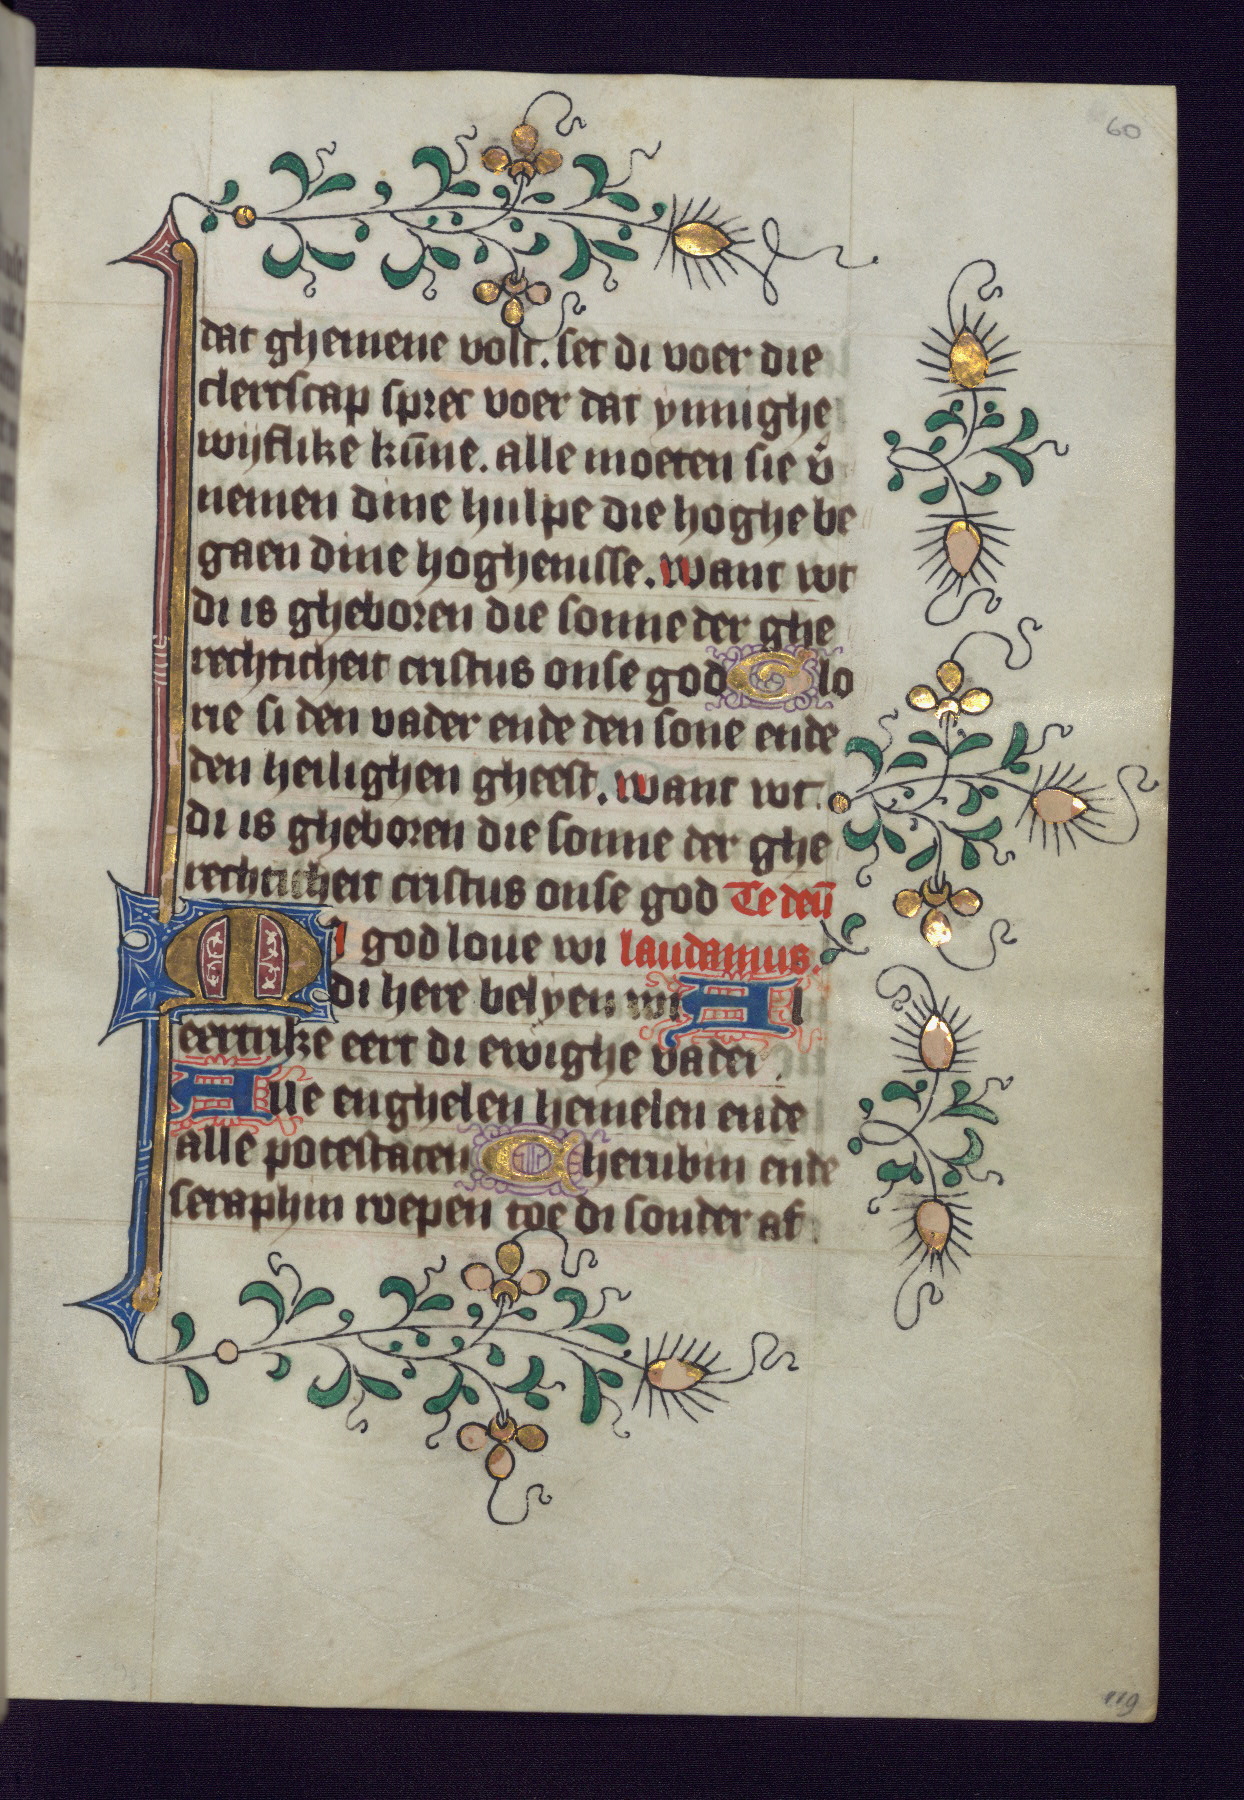 60
dat ghemene volc. set di voer die
clercscap sprec voer dat ynnighe
wijflike kūne. alle moeten sie v̄
nemen dine hulpe die hoghe be
gaen dine hoghenisse. Want wt
di is gheboren die sonne der ghe
rechticheit cristus onse god Glo
rie si den vader ende den sone ende
den heilighen gheest. Want wt
di is gheboren die sonne der ghe
rechticheit cristus onse god Te deū
DI god loue wi laudamus.
di here belyen wi Al
eertrike eert di ewighe vader.
Alle enghelen hemelen ende
alle potestaten Cherubin ende
seraphin roepen toe di sonder af
119